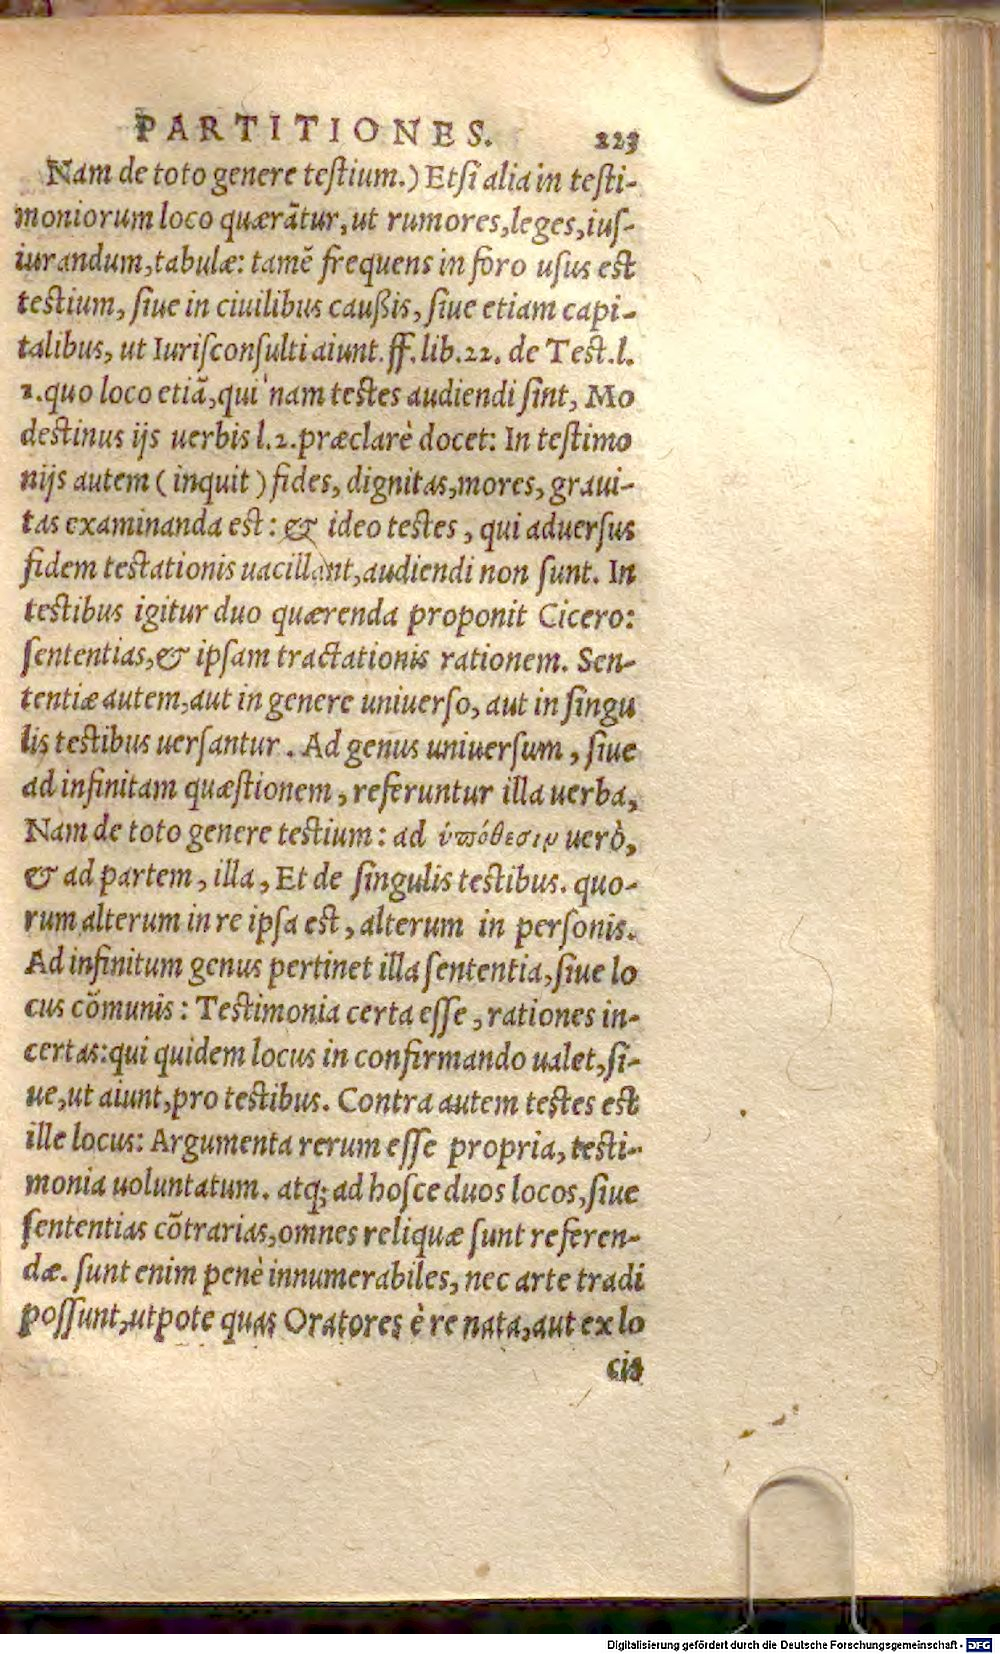 PARTITIONES. 223
Nam de toto genere testium.) Etsi alia in testi-
moniorum loco quærãtur, ut rumores, leges, ius-
iurandum, tabulæ: tamẽ frequens in foro usus est
testium, siue in ciuilibus caußis, siue etiam capi-
talibus, ut Iurisconsulti aiunt. ff. lib. 22. de Test. l.
1. quo loco etiã, qui nam testes audiendi sint, Mo
destinus ijs uerbis l. 2. præclarè docet: In testimo
nijs autem (inquit) fides, dignitas, mores, graui-
tas examinanda est: & ideo testes, qui aduersus
fidem testationis uacillant, audiendi non sunt. In
testibus igitur duo quærenda proponit Cicero:
sententias, & ipsam tractationis rationem. Sen-
tentiæ autem, aut in genere uniuerso, aut in singu
lis testibus uersantur. Ad genus uniuersum, siue
ad infinitam quæstionem, referuntur illa uerba,
Nam de toto genere testium: ad ὑπόθεσιν uerò,
& ad partem, illa, Et de singulis testibus. quo-
rum alterum in re ipsa est, alterum in personis.
Ad infinitum genus pertinet illa sententia, siue lo
cus cõmunis: Testimonia certa esse, rationes in-
certas: qui quidem locus in confirmando ualet, si-
ue, ut aiunt, pro testibus. Contra autem testes est
ille locus: Argumenta rerum esse propria, testi-
monia uoluntatum. atq; ad hosce duos locos, siue
sententias cõtrarias, omnes reliquæ sunt referen-
dæ. sunt enim penè innumerabiles, nec arte tradi
possunt, utpote quas Oratores è re nata, aut ex lo
cis
Digitalisierung gefördert durch die Deutsche Forschungsgemeinschaft - DFG